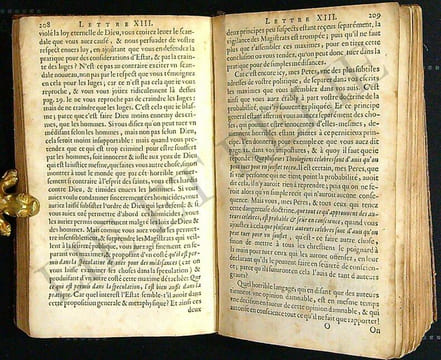 208 LETTRE XIII.
violé la loy eternelle de Dieu, vous croyez lever le scandale
que vous avez causé, & nous persuader de vostre
respect envers luy, en ajoûtant que vous en défendez la
pratique pour des considerations d'Estat, & par la crainte
des Juges? N'est-ce pas au contraire exciter un scandale
nouveau, non pas par le respect que vous témoignez
en cela pour les Juges; car ce n'est pas cela que je vous
reproche, & vous vous jouez ridiculement là dessus
pag. 29. Je ne vous reproche pas de craindre les Juges;
mais de ne craindre que les Juges. C'est cela que je blâme;
parce que c'est faire Dieu moins ennemy des crimes,
que les hommes. Si vous disiez qu'on peut tuer un
médisant selon les hommes, mais non pas selon Dieu,
cela seroit moins insupportable: mais quand vous pretendez
que ce qui est trop criminel pour estre souffert
par les hommes, soit innocent & juste aux yeux de Dieu
qui est la justice mesme, que faites vous autre chose, sinon
montrer à tout le monde que par cét horrible renversement
si contraire à l'esprit des saints, vous estes hardis
contre Dieu, & timides envers les hommes. Si vous
aviez voulu condamner sincerement ces homicides, vous
auriez laissé subsister l'ordre de Dieu qui les défend: & si
vous aviez osé permettre d'abord ces homicides, vous
les auriez permis ouvertement malgré les loix de Dieu &
des hommes. Mais comme vous avez voulu les permettre
insensiblement, & surprendre les Magistrats qui veillent
à la seureté publique, vous avez agi finement en separant
vos maximes, & proposant d'un costé qu'il est permis
dans la speculation de tuer pour des médisances (car on
vous laisse examiner les choses dans la speculation) &
produisant d'un autre costé cette maxime détachée, Que
ce qui est permis dans la speculation, l'est bien aussi dans la
pratique. Car quel interest l'Estat semble-t'il avoir dans
cette proposition generale & metaphysique? Et ainsi ces
deux
LETTRE XIII. 209
deux principes peu suspects estant receus separément, la
vigilance des Magistrats est trompée; puis qu'il ne faut
plus que rassembler ces maximes, pour en tirer cette
conclusion où vous tendez, qu'on peut donc tuer dans la
pratique pour de simples médisances.
Car c'est encore icy, mes Peres, une des plus subtiles
adresses de vostre politique, de separer dans vos écrits
les maximes que vous assemblez dans vos avis. C'est
ainsi que vous avez établi à part vostre doctrine de la
probabilité, que j'ay souvent expliquée. Et ce principe
general estant affermi, vous avancez separément des choses,
qui pouvant estre innocentes d'elles-mesmes, deviennent
horribles estant jointes à ce pernicieux principe.
J'en donneray pour exemple ce que vous avez dit
page 11. dans vos impostures, & à quoy il faut que je
réponde: Que plusieurs Theologiens celebres sont d'avis qu'on
peut tuer pour un soufflet receu. Il est certain, mes Peres, que
si une personne qui ne tient point la probabilité, avoit
dit cela, il n'y auroit rien à reprendre; puis qu'on ne feroit
alors qu'un simple recit qui n'auroit aucune consequence.
Mais vous, mes Peres, & tous ceux qui tenez
cette dangereuse doctrine, que tout ce qu'approuvent des auteurs
celebres, est probable & seur en conscience, quand vous
ajoûtez à cela que plusieurs auteurs celebres sont d'avis qu'on
peut tuer pour un soufflet, qu'est-ce faire autre chose,
sinon de mettre à tous les chrestiens le poignard à
la main pour tuer ceux qui les auront offensez, en leur
declarant qu'ils le peuvent faire en seureté de conscience;
parce qu'ils suivront en cela l'avis de tant d'auteurs
graves?
Quel horrible langage, qui en disant que des auteurs
tiennent une opinion damnable, est en mesme temps
une decision en faveur de cette opinion damnable, & qui
autorise en conscience tout ce qu'il ne fait que rapporter!
O On